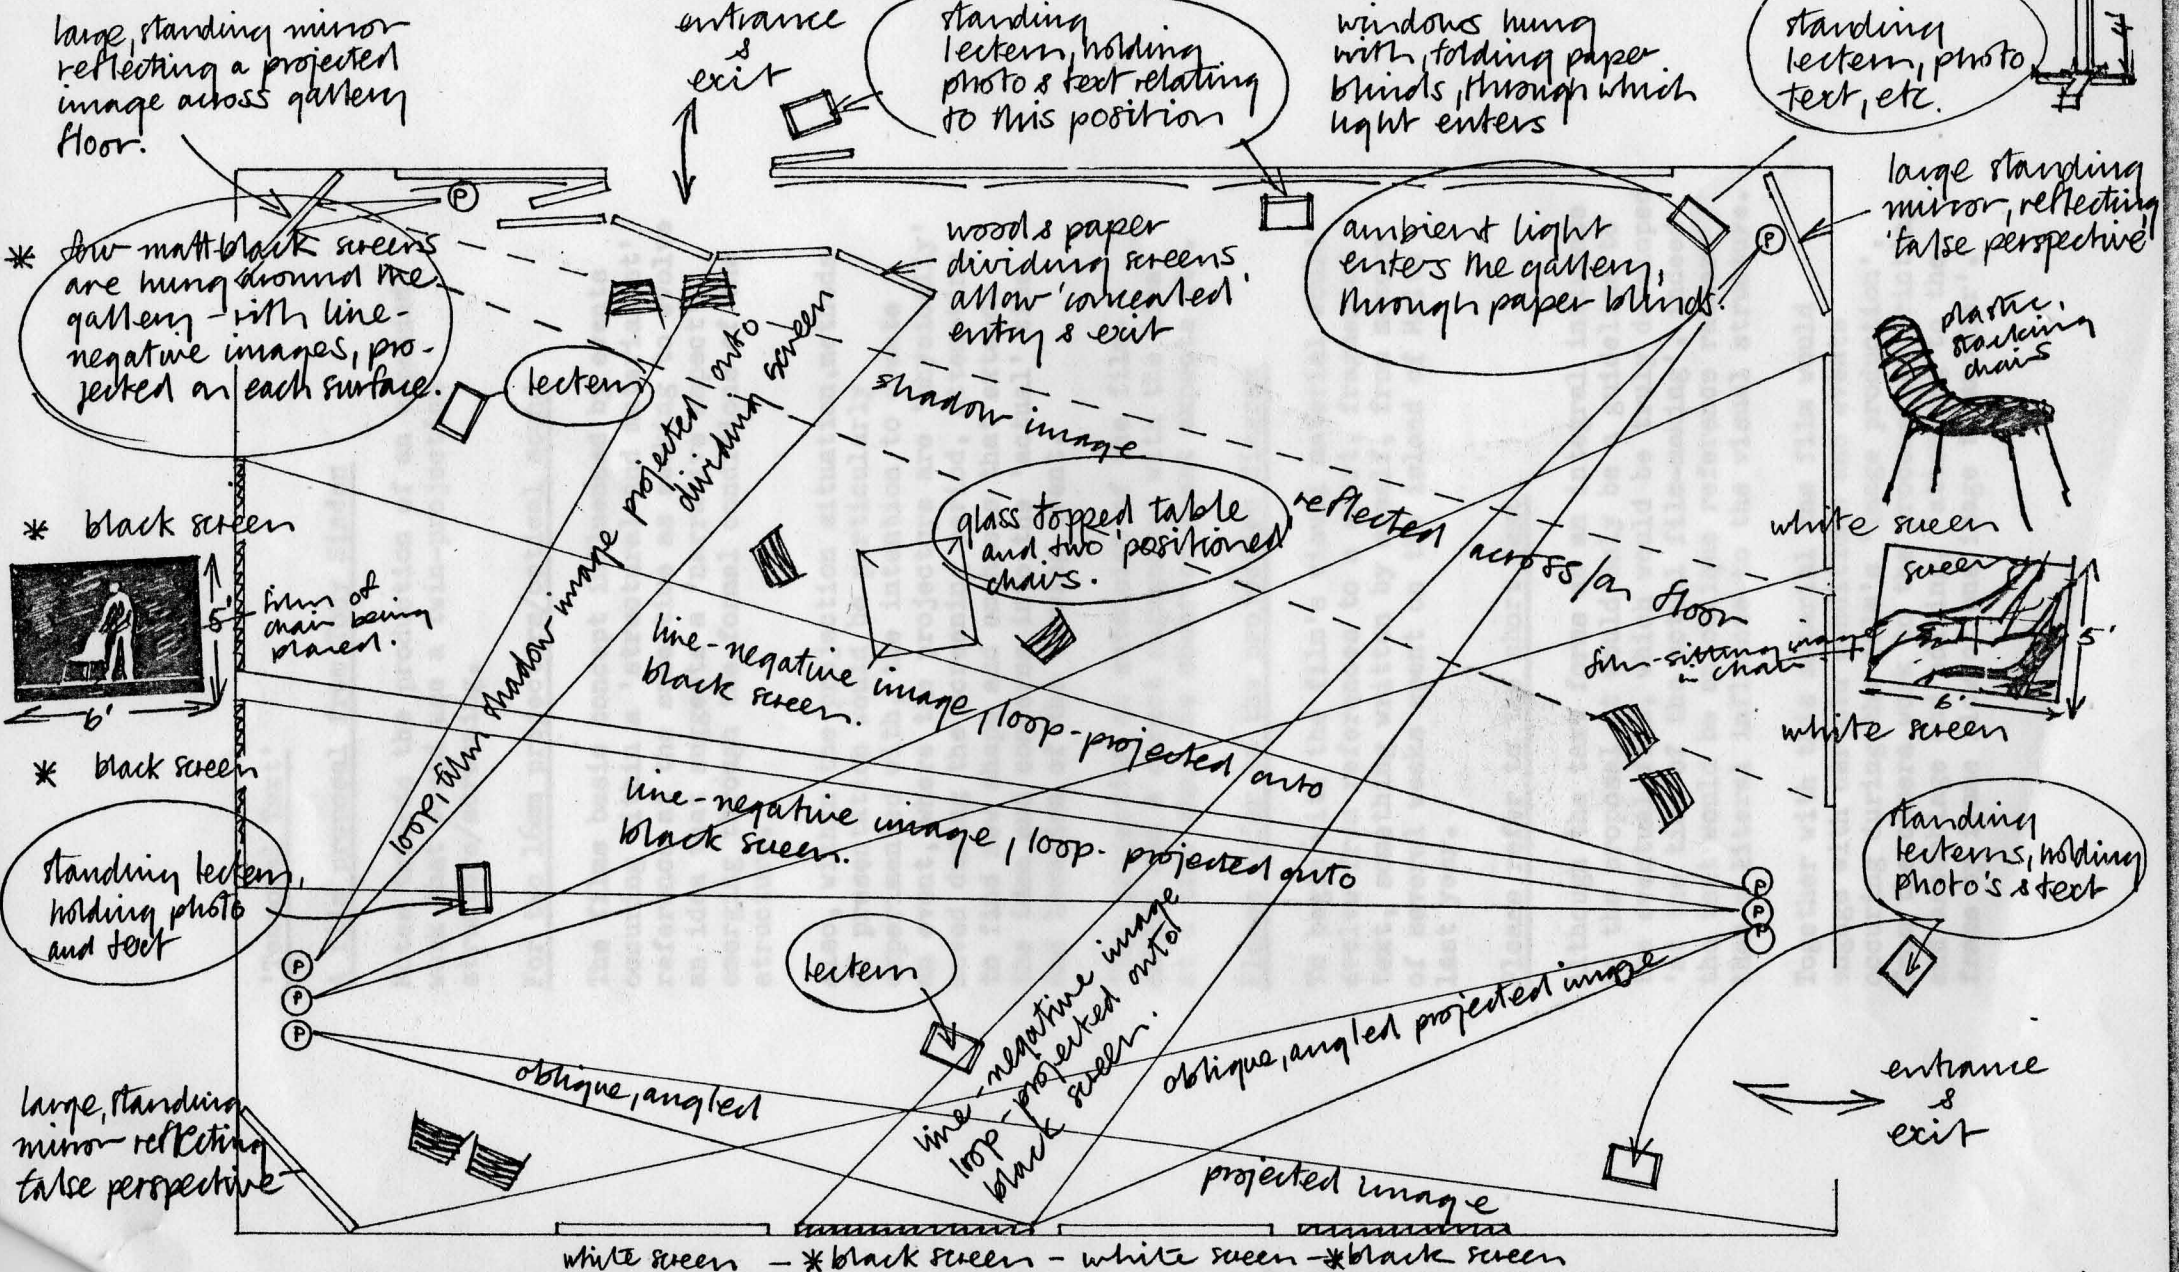 large, standing mirror
reflecting a projected
image across gallery
floor.
entrance
&
exit
standing
lectern, holding
photo & text relating
to this position
windows hung
with, folding paper
blinds, through which
light enters
standing
lectern, photo
text, etc.
P
large standing
mirror, reflecting
'false perspective'
P
* few matt black screens
are hung around the
gallery - with line-
negative images, pro-
jected on each surface.
wood & paper
dividing screens
allow 'concealed'
entry & exit
ambient light
enters the gallery,
through paper blinds.
plastic
stacking
chairs
lectern
loop, film shadow image projected onto
dividing screen
shadow image
reflected across/on floor
glass topped table
and two 'positioned'
chairs.
* black screen
film of
chair being
placed.
5'
6'
* black screen
white screen
screen
5'
6'
film - sitting image
in chair
white screen
line-negative image, loop-projected onto
black screen.
line-negative image, loop-projected onto
black screen.
standing lectern,
holding photo
and text
standing
lecterns, holding
photo's & text
P
P
P
P
P
lectern
line-negative image
loop-projected onto
black screen.
oblique, angled projected image
oblique, angled
projected image
large, standing
mirror reflecting
false perspective
entrance
&
exit
white screen - *black screen - white screen - *black screen